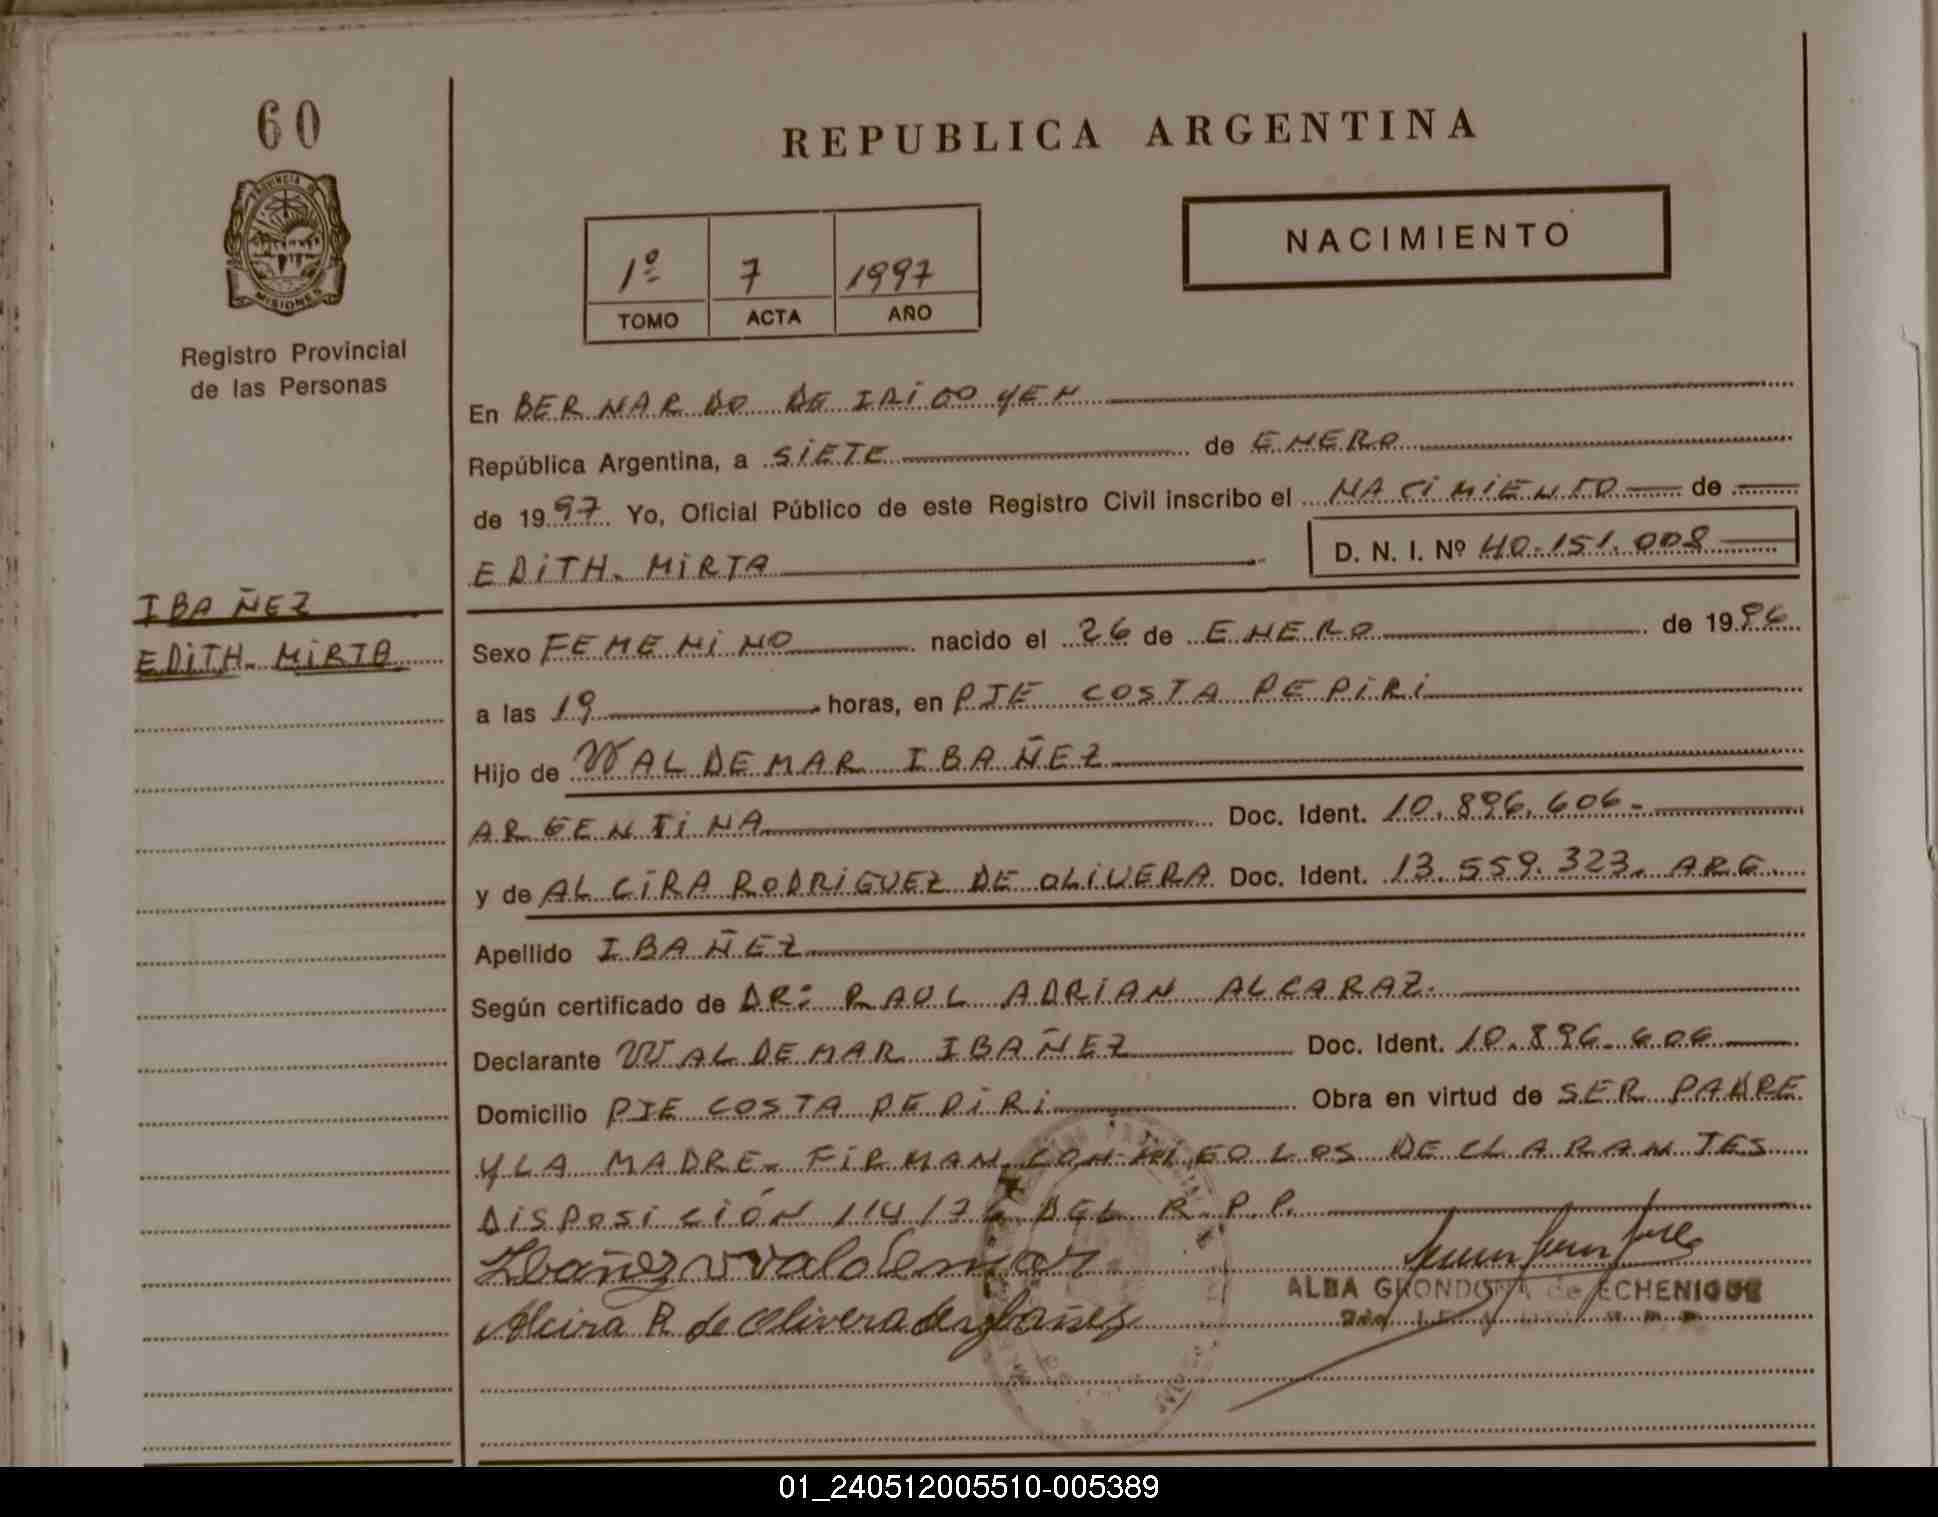 60
PROVINCIA DE
MISIONES
Registro Provincial
de las Personas
IBAÑEZ
EDITH. MIRTA
REPUBLICA ARGENTINA
NACIMIENTO
1º 7 1997
TOMO ACTA AÑO
En BERNARDO DE IRIGOYEN
República Argentina, a SIETE de ENERO
de 1997 Yo, Oficial Público de este Registro Civil inscribo el NACIMIENTO de
EDITH. MIRTA D. N. I. Nº 40.151.008
Sexo FEMENINO nacido el 26 de ENERO de 1996
a las 19 horas, en PJE COSTA PEPIRI
Hijo de WALDEMAR IBAÑEZ
ARGENTINA Doc. Ident. 10.896.606.
y de ALCIRA RODRIGUEZ DE OLIVERA Doc. Ident. 13.559.323. ARG.
Apellido IBAÑEZ
Según certificado de DR: RAUL ADRIAN ALCARAZ.
Declarante WALDEMAR IBAÑEZ Doc. Ident. 10.896.606
Domicilio PJE COSTA PEPIRI Obra en virtud de SER PADRE
Y LA MADRE. FIRMAN LOS DECLARANTES
DISPOSICIÓN 114/76 DEL R.P.P.
Ibañez Waldemar
Alcira R. de Olivera de Ibañez
ALBA GRONDONA de ECHENIQUE
01_240512005510-005389